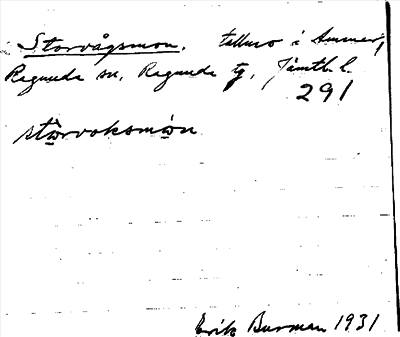 Storvågsmon. tallmo i Ammer,
Ragunda sn, Ragunda tg, Jämtl. l.
291
stårvoksmån
Erik Burman 1931